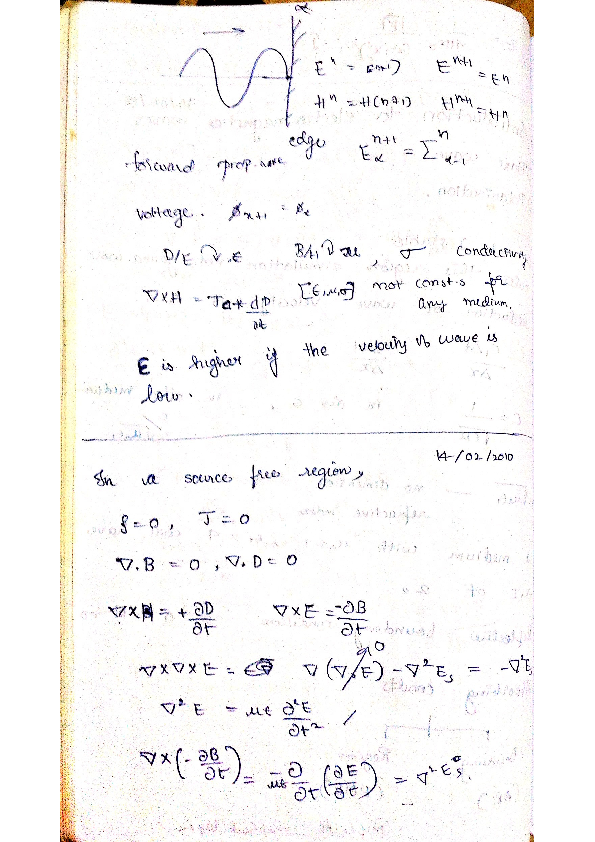 x
E^n = E(n-1) E^{n+1} = E^n
H^n = H(n+1) H^{n+1} = H^n
edge E_x^{n+1} = Σ_{x-1}^n
forward prop. wave
voltage. ϕ_{x+1} = ϕ_x
D/E ϵ B/H , σ conductivity
∇×H = J + ∂D/∂t [ϵ,μ,σ] not const.s for
any medium.
E is higher if the velocity of wave is
low.
14-/02/2010
In a source free region,
ρ=0, J=0
∇.B = 0, ∇.D = 0
∇×H = +∂D/∂t ∇×E = -∂B/∂t
∇×∇×E = ∇(∇.E) 0 - ∇²E_s = -∇²E_s
∇²E = μϵ ∂²E/∂t² /
∇×(-∂B/∂t) = -μϵ ∂/∂t (∂E/∂t) = ∇²E_s.